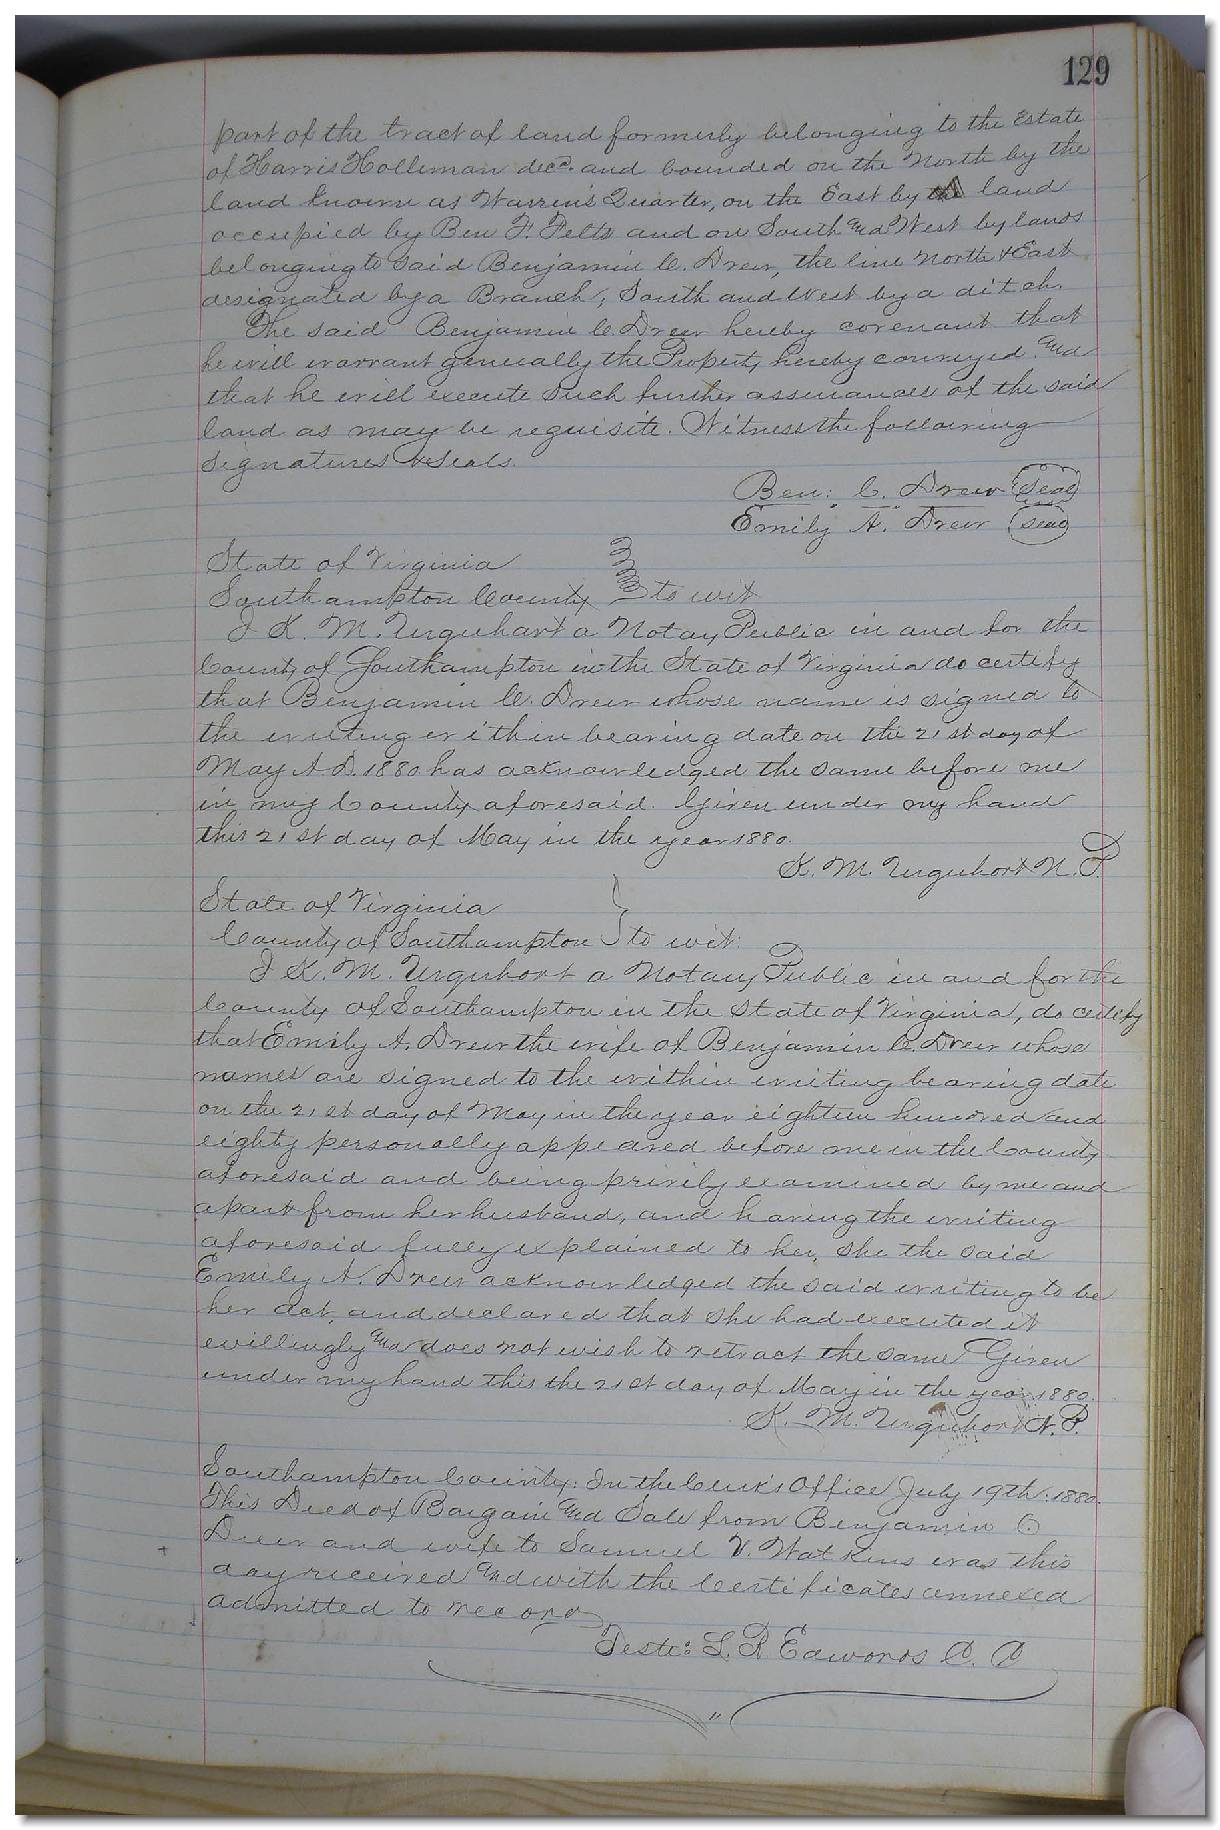 129
part of the tract of land formerly belonging to the Estate
of Harris Holleman decd. and bounded on the North by the
land known as Warren's Quarter, on the East by the land
occupied by Ben F. Felts and on South and West by lands
belonging to said Benjamin C. Drew, the line North & East
designated by a Branch, South and West by a ditch.
The said Benjamin C. Drew hereby covenant that
he will warrant generally the Property hereby conveyed and
that he will execute such further assurances of the said
land as may be requisite. Witness the following
signatures & seals.
Ben: C. Drew (Seal)
Emily A. Drew (Seal)
State of Virginia
Southampton County to wit
I K. M. Urquhart a Notay Public in and for the
County of Southampton in the State of Virginia do certify
that Benjamin C. Drew whose name is signed to
the writing within bearing date on the 21st day of
May A D. 1880 has acknowledged the same before me
in my County aforesaid. Given under my hand
this 21st day of May in the year 1880.
K. M. Urquhart N. P.
State of Virginia
County of Southampton to wit:
I K. M. Urquhart a Notary Public in and for the
County of Southampton in the State of Virginia, do certify
that Emily A. Drew the wife of Benjamin C. Drew whose
names are signed to the within writing bearing date
on the 21st day of May in the year eighteen hundred and
eighty personally appeared before me in the County
aforesaid and being privily examined by me and
apart from her husband, and having the writing
aforesaid fully explained to her, she the said
Emily A. Drew acknowledged the said writing to be
her act, and declared that she had executed it
willingly and does not wish to retract the same Given
under my hand this the 21st day of May in the year 1880.
K. M. Urquhart N. P.
Southampton County: In the Clerk's Office July 19th. 1880.
This Deed of Bargain and Sale from Benjamin C.
Drew and wife to Samuel V. Watkins was this
day received and with the Certificates annexed
admitted to record
Teste: L. R Edwards C. C